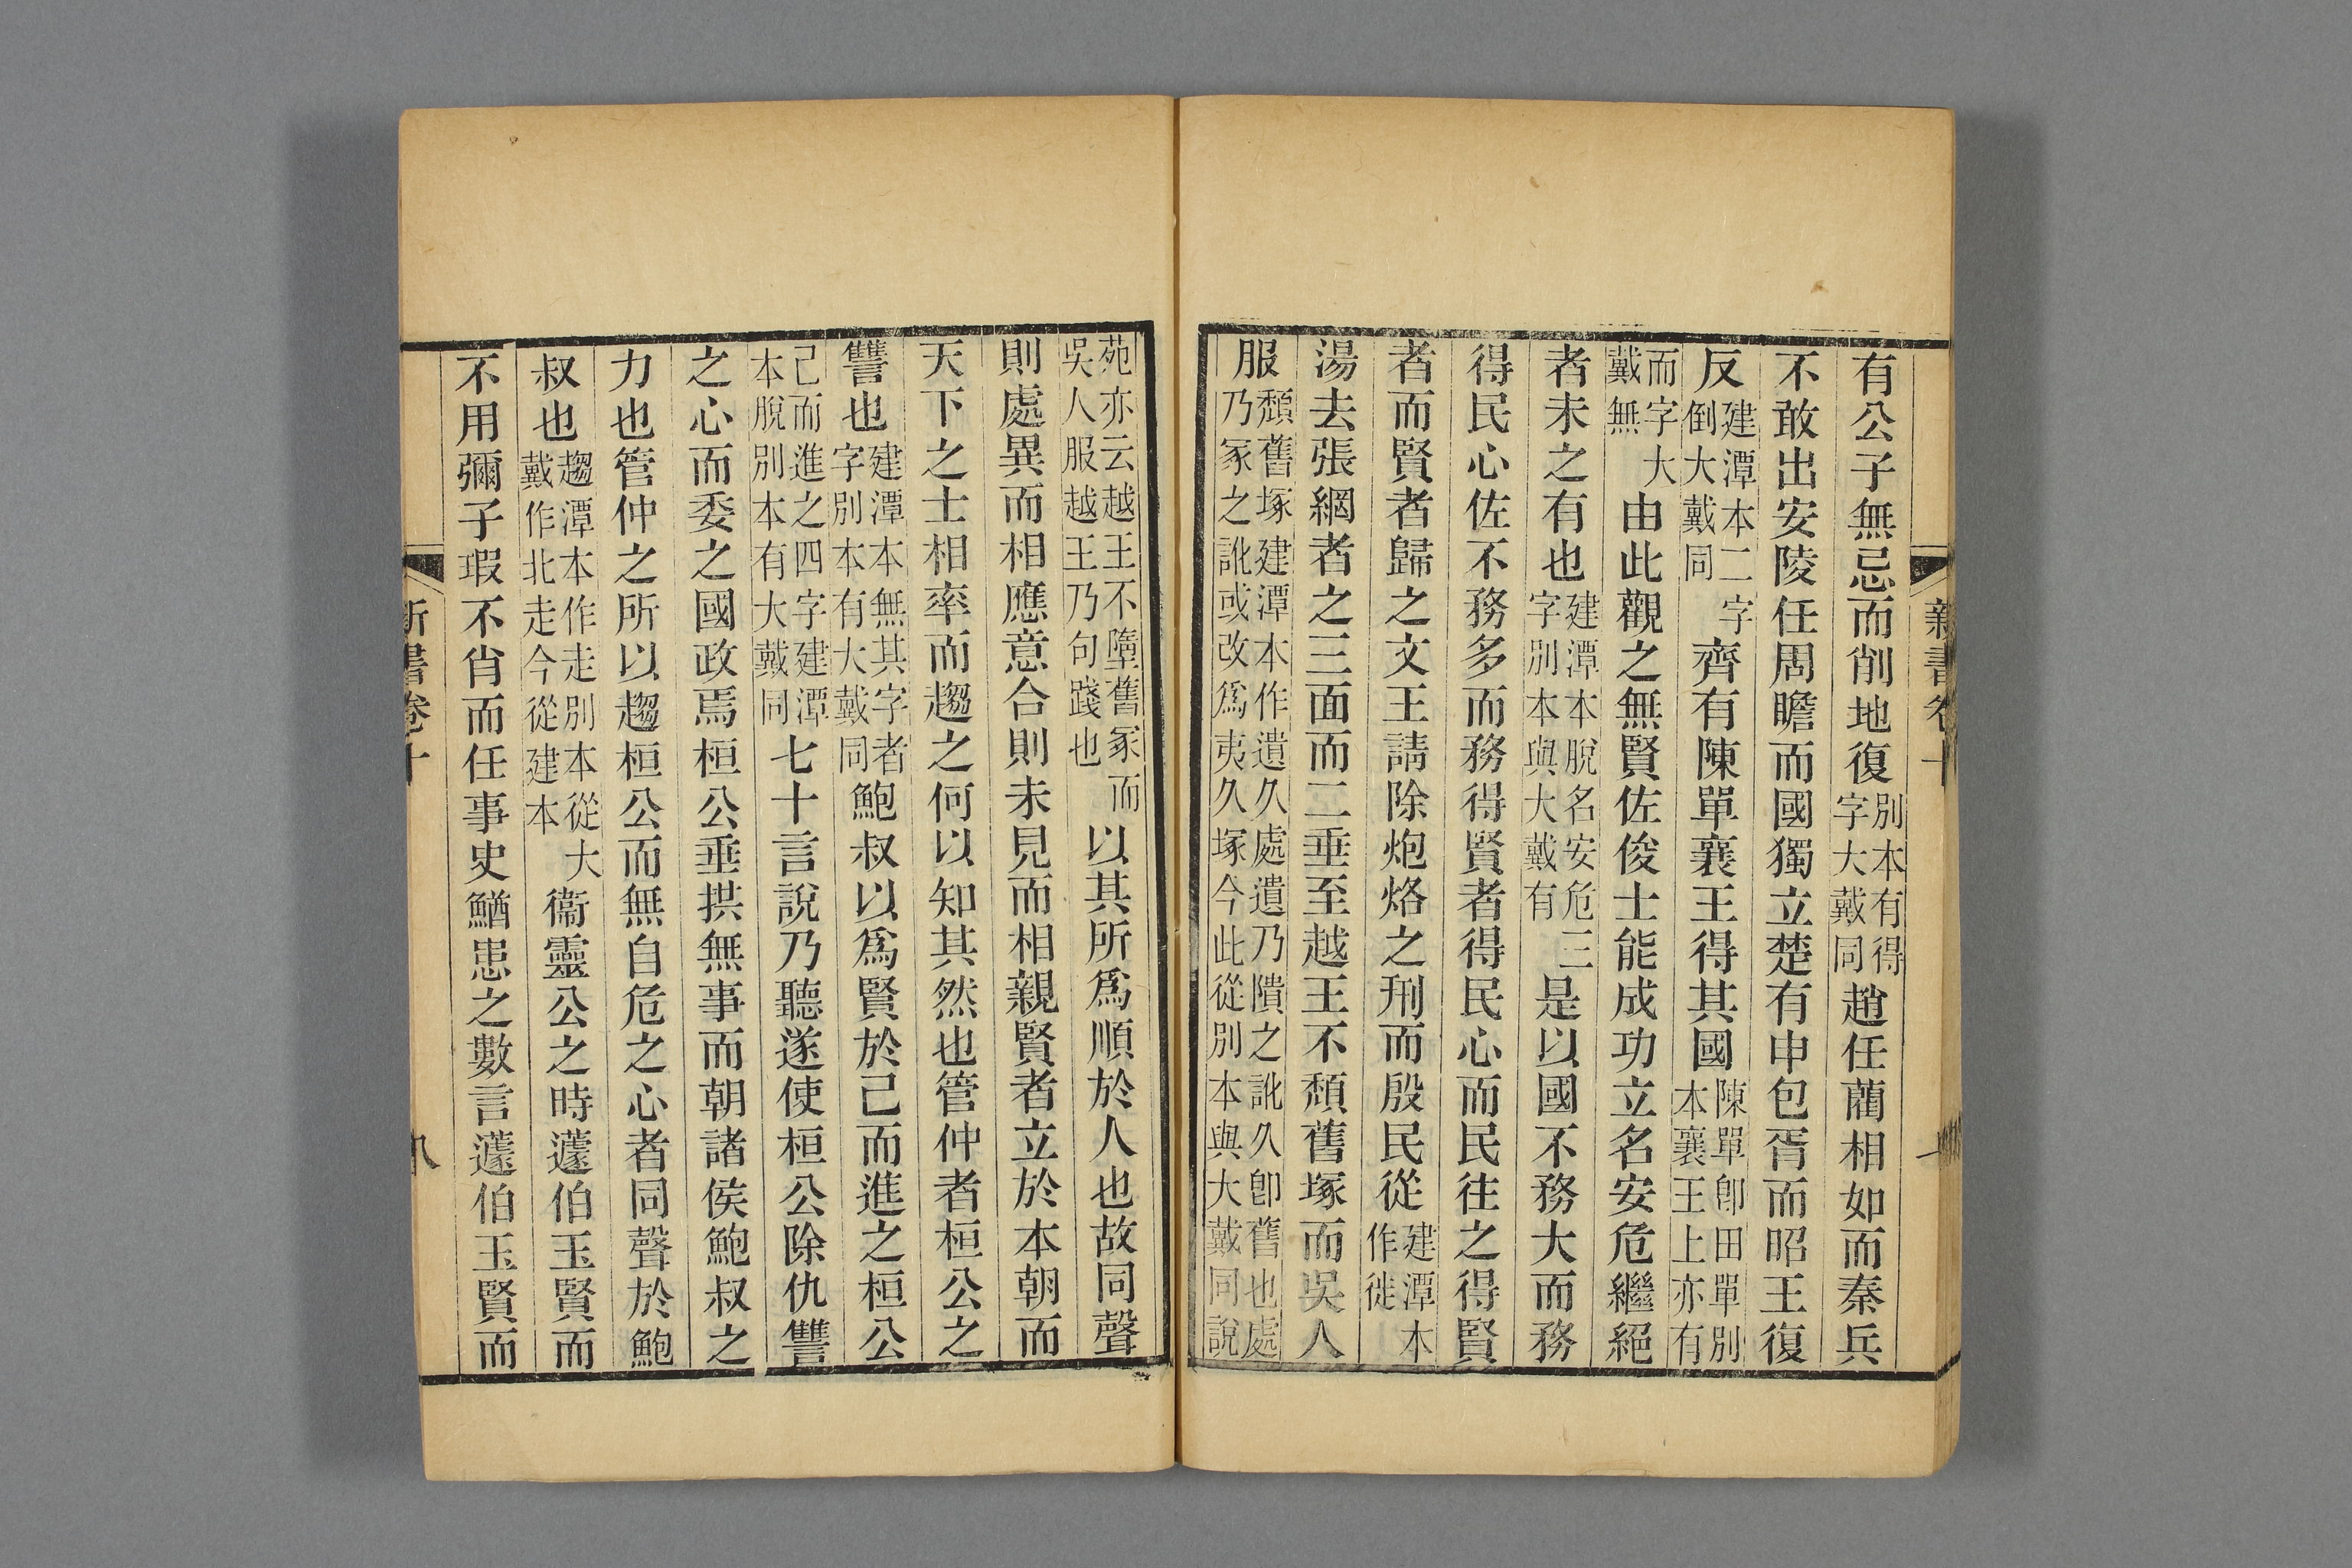 有公子無忌而削地復別本有得字大戴同趙任藺相如而秦兵
不敢出安陵任周瞻而國獨立楚有申包胥而昭王復
反建潭本二字倒大戴同齊有陳單襄王得其國陳單卽田單別本襄王上亦有
而字大戴無由此觀之無賢佐俊士能成功立名安危繼絕
者未之有也建潭本脫名安危三字別本與大戴有是以國不務大而務
得民心佐不務多而務得賢者得民心而民往之得賢
者而賢者歸之文王請除炮烙之刑而殷民從建潭本作徙
湯去張網者之三面而二垂至越王不頹舊塚而吳人
服頹舊塚建潭本作遺久處遺乃隤之訛久卽舊也處乃冢之訛或改爲夷久塚今此從別本與大戴同說
苑亦云越王不墮舊冢而吳人服越王乃句踐也以其所爲順於人也故同聲
則處異而相應意合則未見而相親賢者立於本朝而
天下之士相率而趨之何以知其然也管仲者桓公之
讐也建潭本無其字者字別本有大戴同鮑叔以爲賢於己而進之桓公
己而進之四字建潭本脫別本有大戴同七十言說乃聽遂使桓公除仇讐
之心而委之國政焉桓公垂拱無事而朝諸侯鮑叔之
力也管仲之所以趨桓公而無自危之心者同聲於鮑
叔也趨潭本作走別本從大戴作北走今從建本衞靈公之時蘧伯玉賢而
不用彌子瑕不肖而任事史鰌患之數言蘧伯玉賢而
新書卷十
八